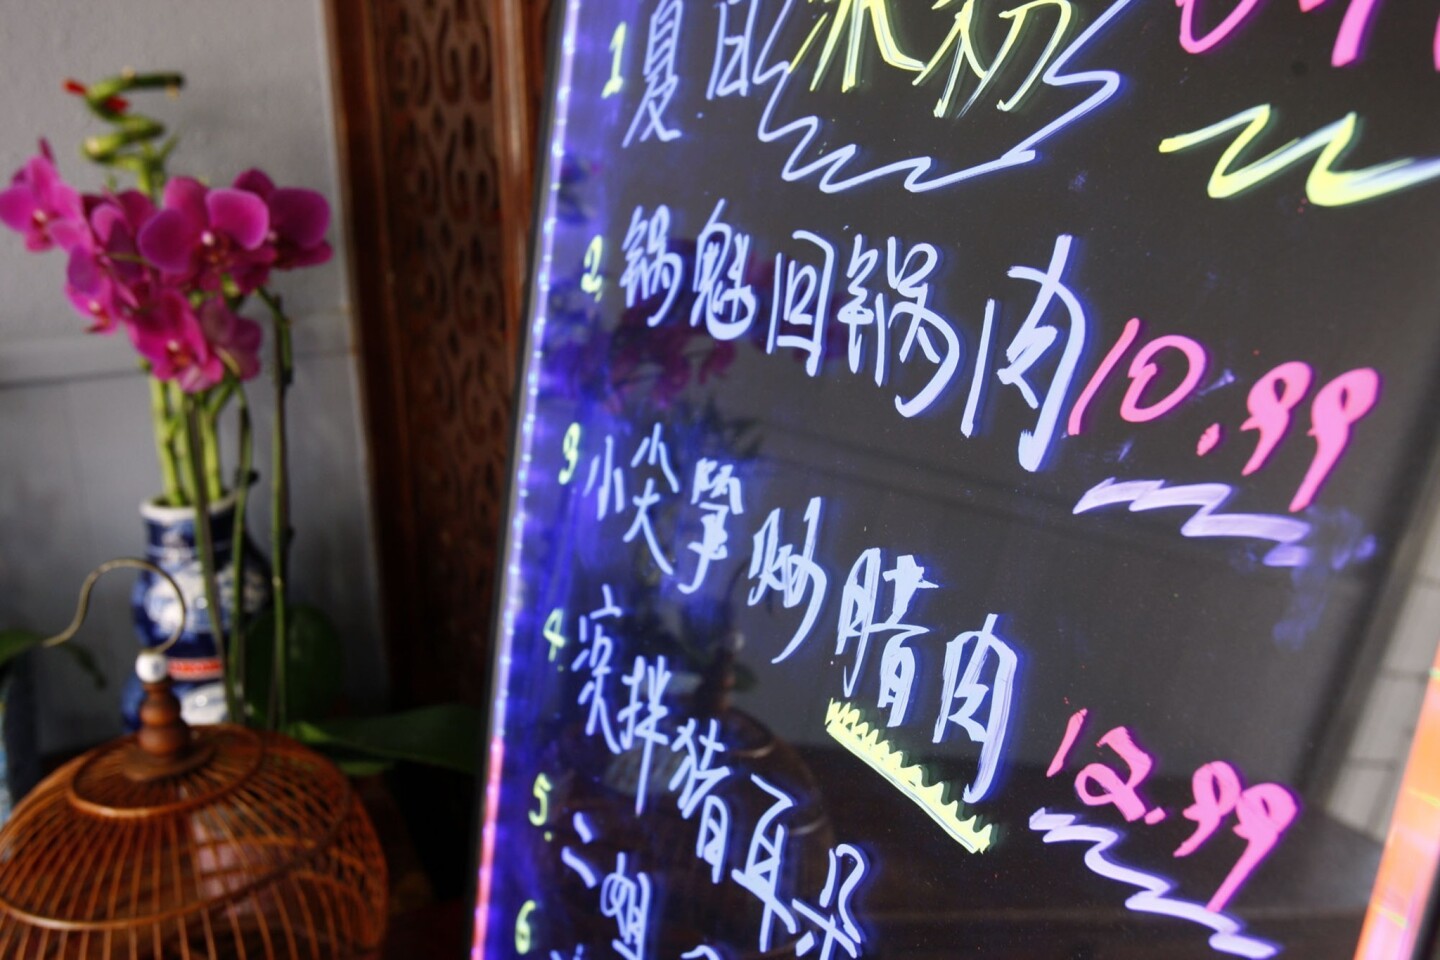 1 夏日冰粉
2. 锅魁回锅肉 10.99
3 小尖笋炒腊肉 12.99
4. 凉拌猪耳朵
5. 二姐
6